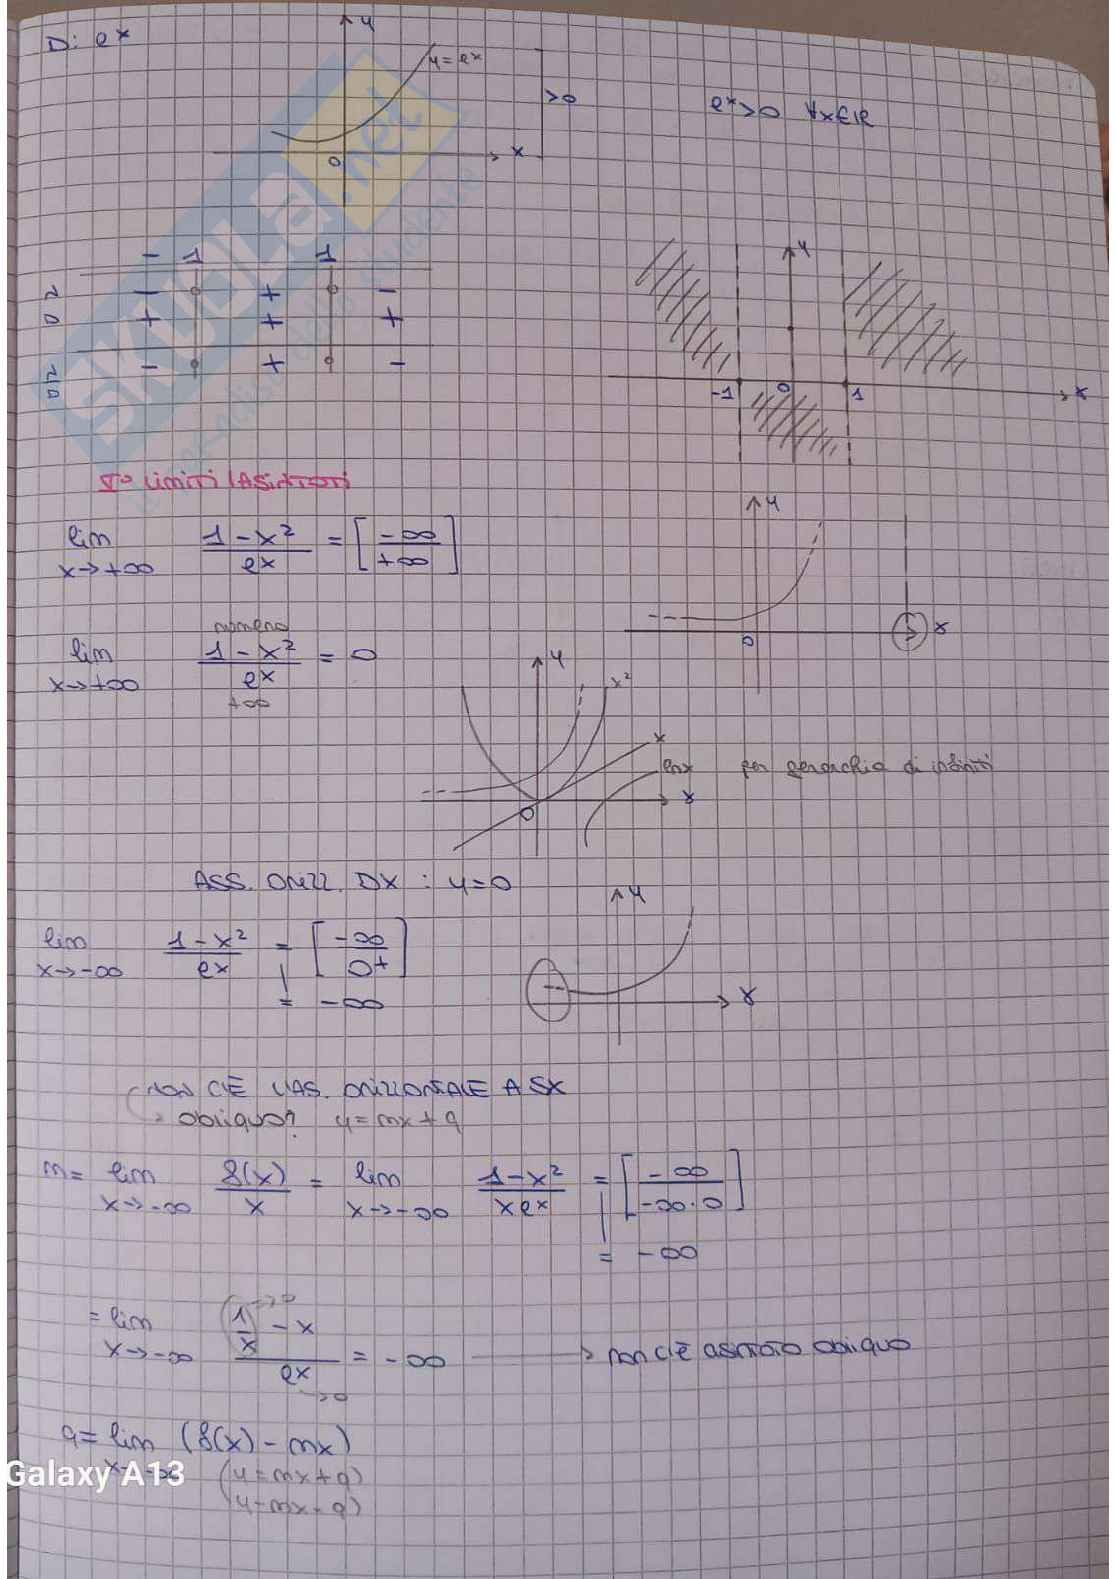 D: e^x
y
y = e^x
>0
e^x > 0 ∀x∈ℝ
0
x
- 1 1
N - + -
D + + +
N/D - + -
y
-1 0 1 x
V° LIMITI (ASINTOTI)
lim x→+∞ (1-x²)/e^x = [-∞/+∞]
y
0
x
lim x→+∞ (1-x²)/e^x = 0
+∞
y
x²
x
lnx per gerarchia di infiniti
0
x
ASS. ORIZZ. DX : y=0
y
lim x→-∞ (1-x²)/e^x = [-∞/0+]
= -∞
x
NON C'È L'AS. ORIZZONTALE A SX
→ obliquo? y = mx + q
m = lim x→-∞ f(x)/x = lim x→-∞ (1-x²)/(x e^x) = [-∞/(-∞·0)]
= -∞
= lim x→-∞ (1/x - x)/e^x = -∞ → non c'è asintoto obliquo
→0
→0
q = lim x→-∞ (f(x) - mx)
(y = mx + q)
(y - mx = q)
Galaxy A13
SKUOLA.net